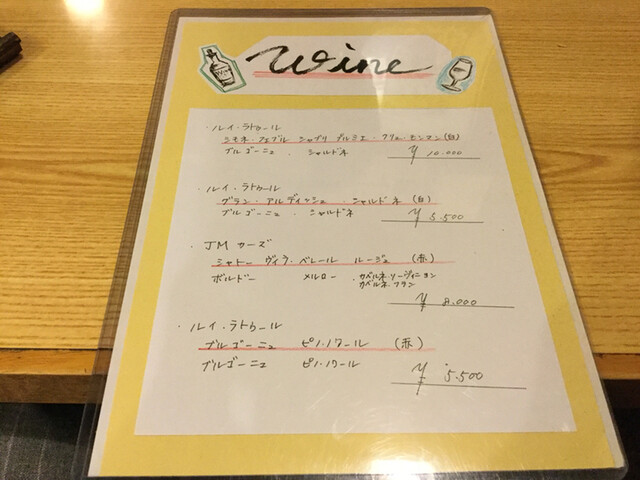 Wine
・ルイ・ラトゥール
シモネ・フェブル シャブリ プルミエ・クリュ・モンマン(白)
ブルゴーニュ ・シャルドネ
¥ 10.000
・ルイ・ラトゥール
グラン・アルディッシュ ・シャルドネ (白)
ブルゴーニュ ・シャルドネ
¥ 5.500
・JM カーズ
シャトー ヴィラ・ベレール ルージュ (赤)
ボルドー メルロー ・カベルネソーヴィニヨン
カベルネフラン
¥ 8.000
・ルイ・ラトゥール
ブルゴーニュ ピノ・ノワール (赤)
ブルゴーニュ ピノ・ノワール
¥ 5.500